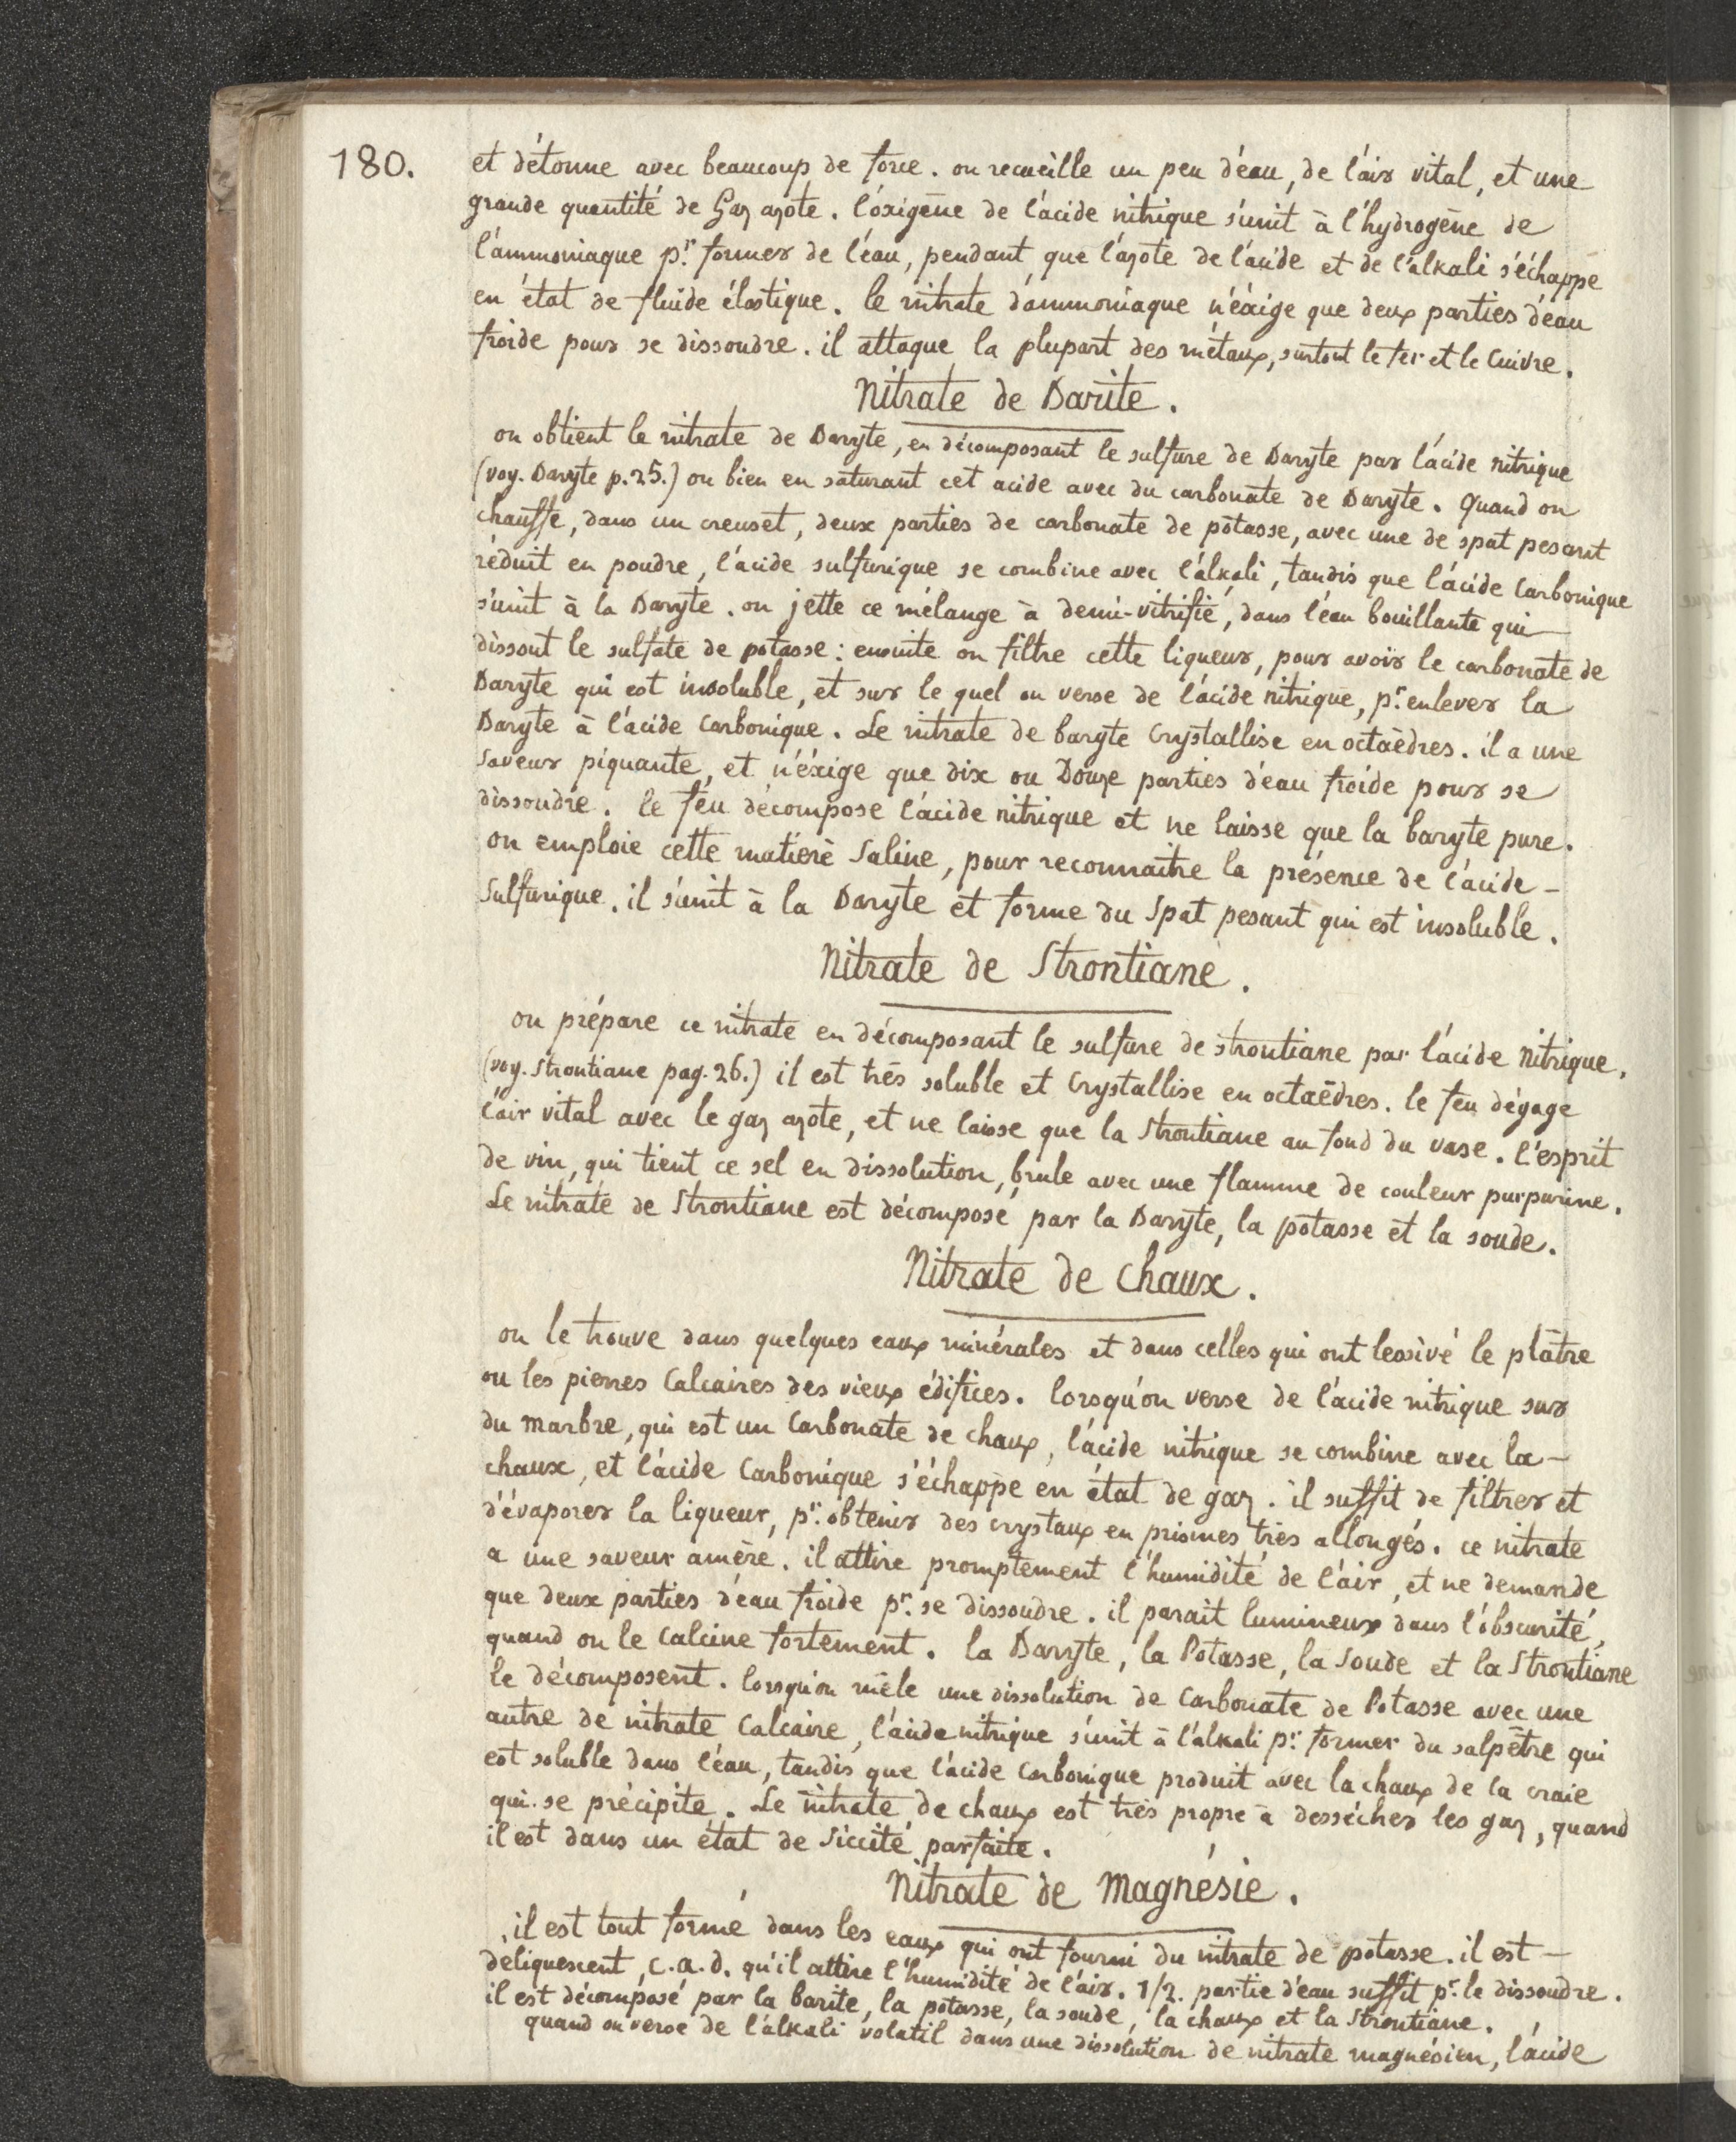 180.
et détonne avec beaucoup de force. on recueille un peu d'eau, de l'air vital, et une
grande quantité de Gaz azote. l'óxigène de l'acide nitrique s'unit à l'hydrogène de
l'ammoniaque p.r former de l'eau, pendant que l'azote de l'acide et de l'alkali s'échappe
en état de fluide élastique. le nitrate d'ammoniaque n'éxige que deux parties d'eau
froide pour se dissoudre. il attaque la plupart des métaux, surtout le fer et le Cuivre.
Nitrate de Barite.
on obtient le nitrate de Baryte, en décomposant le sulfure de Baryte par l'acide nitrique
(voy. Baryte p. 25.) ou bien en saturant cet acide avec du carbonate de Baryte. Quand on
chauffe, dans un creuset, deux parties de carbonate de potasse, avec une de spat pesant
réduit en poudre, l'acide sulfurique se combine avec l'alkali, tandis que l'acide Carbonique
s'unit à la Baryte. on jette ce mélange à demi-vitrifié, dans l'eau bouillante qui
dissout le sulfate de potasse: ensuite on filtre cette liqueur, pour avoir le carbonate de
Baryte qui est insoluble, et sur le quel on verse de l'acide nitrique, p.r enlever la
Baryte à l'acide Carbonique. Le nitrate de baryte Crystallise en octaèdres. il a une
Saveur piquante, et n'éxige que dix ou Douze parties d'eau froide pour se
dissoudre. le feu décompose l'acide nitrique et ne laisse que la baryte pure.
on emploie cette matière Saline, pour reconnaitre la présence de l'acide-
Sulfurique. il s'unit à la Baryte et forme du Spat pesant qui est insoluble.
Nitrate de Strontiane.
on prépare ce nitrate en décomposant le sulfure de strontiane par l'acide nitrique.
(voy. Strontiane pag. 26.) il est très soluble et Crystallise en octaèdres. le feu dégage
l'air vital avec le gaz azote, et ne laisse que la Strontiane au fond du vase. l'esprit
de vin, qui tient ce sel en dissolution, brule avec une flamme de couleur purpurine.
Le nitrate de Strontiane est décomposé par la Baryte, la potasse et la soude.
Nitrate de Chaux.
on le trouve dans quelques eaux minérales et dans celles qui ont lessivé le plâtre
ou les pierres Calcaires des vieux édifices. lorsqu'on verse de l'acide nitrique sur
du marbre, qui est un Carbonate de chaux, l'acide nitrique se combine avec la-
chaux, et l'acide Carbonique s'échappe en état de gaz. il suffit de filtrer et
d'évaporer la liqueur, p.r obtenir des crystaux en prismes très allongés. ce nitrate
a une saveur amère. il attire promptement l'humidité de l'air, et ne demande
que deux parties d'eau froide p.r se dissoudre. il parait lumineux dans l'obscurité,
quand on le Calcine fortement. la Baryte, la Potasse, la Soude et la Strontiane
le décomposent. lorsqu'on mêle une dissolution de Carbonate de Potasse avec une
autre de nitrate Calcaire, l'acide nitrique s'unit à l'alkali p.r former du salpêtre qui
est soluble dans l'eau, tandis que l'acide Carbonique produit avec la chaux de la craie
qui se précipite. Le nitrate de chaux est très propre à dessécher les gaz, quand
il est dans un état de Siccité parfaite.
Nitrate de Magnésie.
il est tout formé dans les eaux qui ont fourni du nitrate de potasse. il est-
deliquescent, c.a.d. qu'il attire l'humidité de l'air. 1/2. partie d'eau suffit p.r le dissoudre.
il est décomposé par la barite, la potasse, la soude, la chaux et la Strontiane.
quand on verse de l'alkali volatil dans une dissolution de nitrate magnésien, l'acide